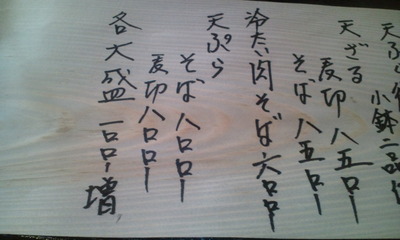 天ぷら
小鉢二品付
天ざる
麦切 八五〇ー
そば 八五〇ー
冷たい肉そば 六〇〇ー
天ぷら
そば 八〇〇ー
麦切 八〇〇ー
各大盛 一〇〇ー増